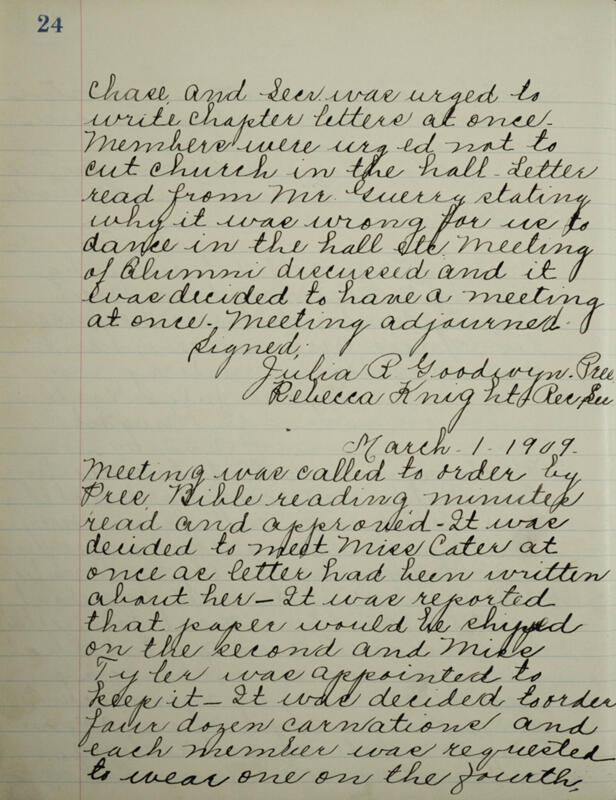 24
Chase, and Secr. was urged to
write chapter letters at once.
Members were urged not to
cut church in the hall. Letter
read from Mr. Guerry stating
why it was wrong for us to
dance in the hall etc. Meeting
of Alumni discussed and it
was decided to have a meeting
at once. Meeting adjourned.
Signed,
Julia R Goodwyn. Pres.
Rebecca Knight, Rec. Sec
March. 1. 1909.
Meeting was called to order by
Pres. Bible reading minutes
read and approved - It was
decided to meet Miss Cater at
once as letter had been written
about her - It was reported
that paper would be shipped
on the second and Miss
Tyler was appointed to
keep it - It was decided to order
four dozen carnations and
each member was requested
to wear one on the fourth,